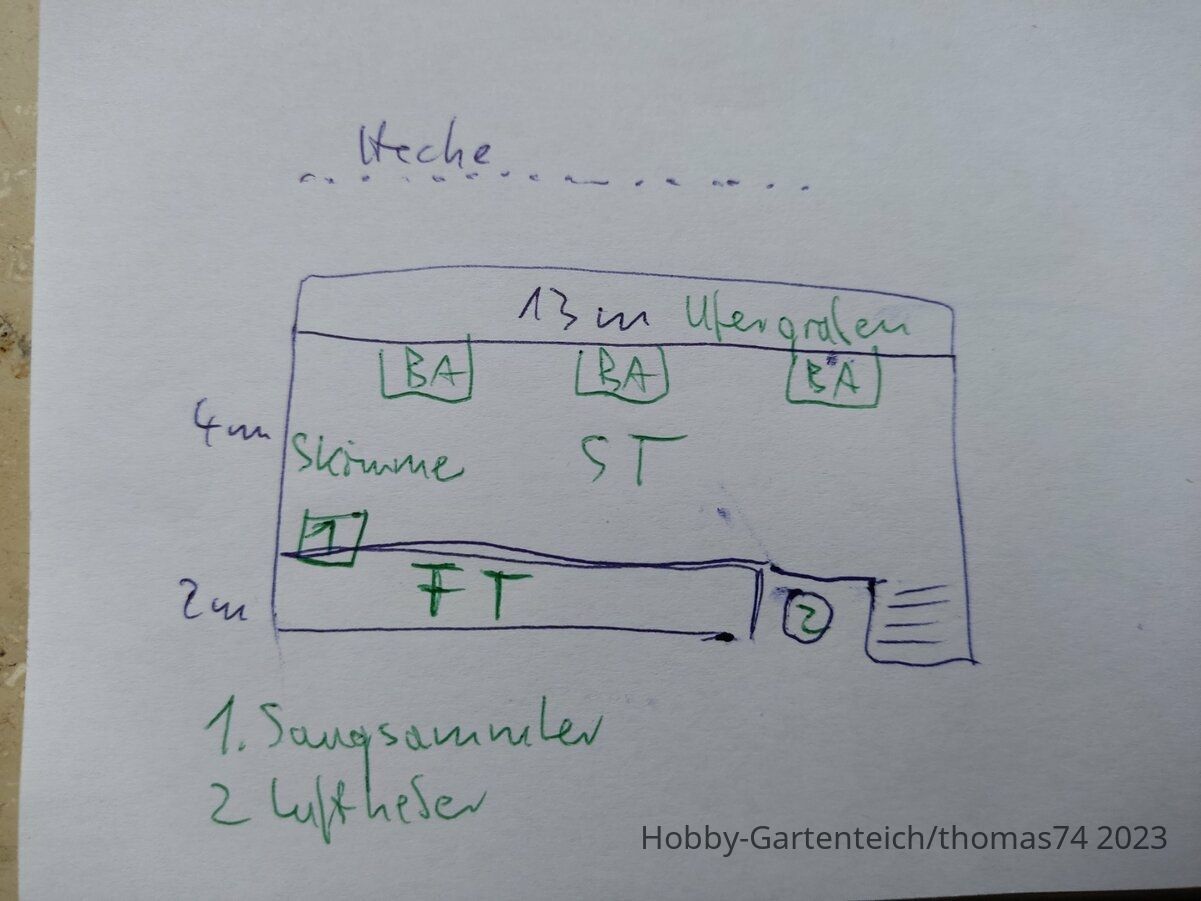 Hecke
13 m Ufergraben
BA BA BA
4m
Skimme ST
1
2m
FT
2
1. Saugsammler
2 Luftheber
Hobby-Gartenteich/thomas74 2023